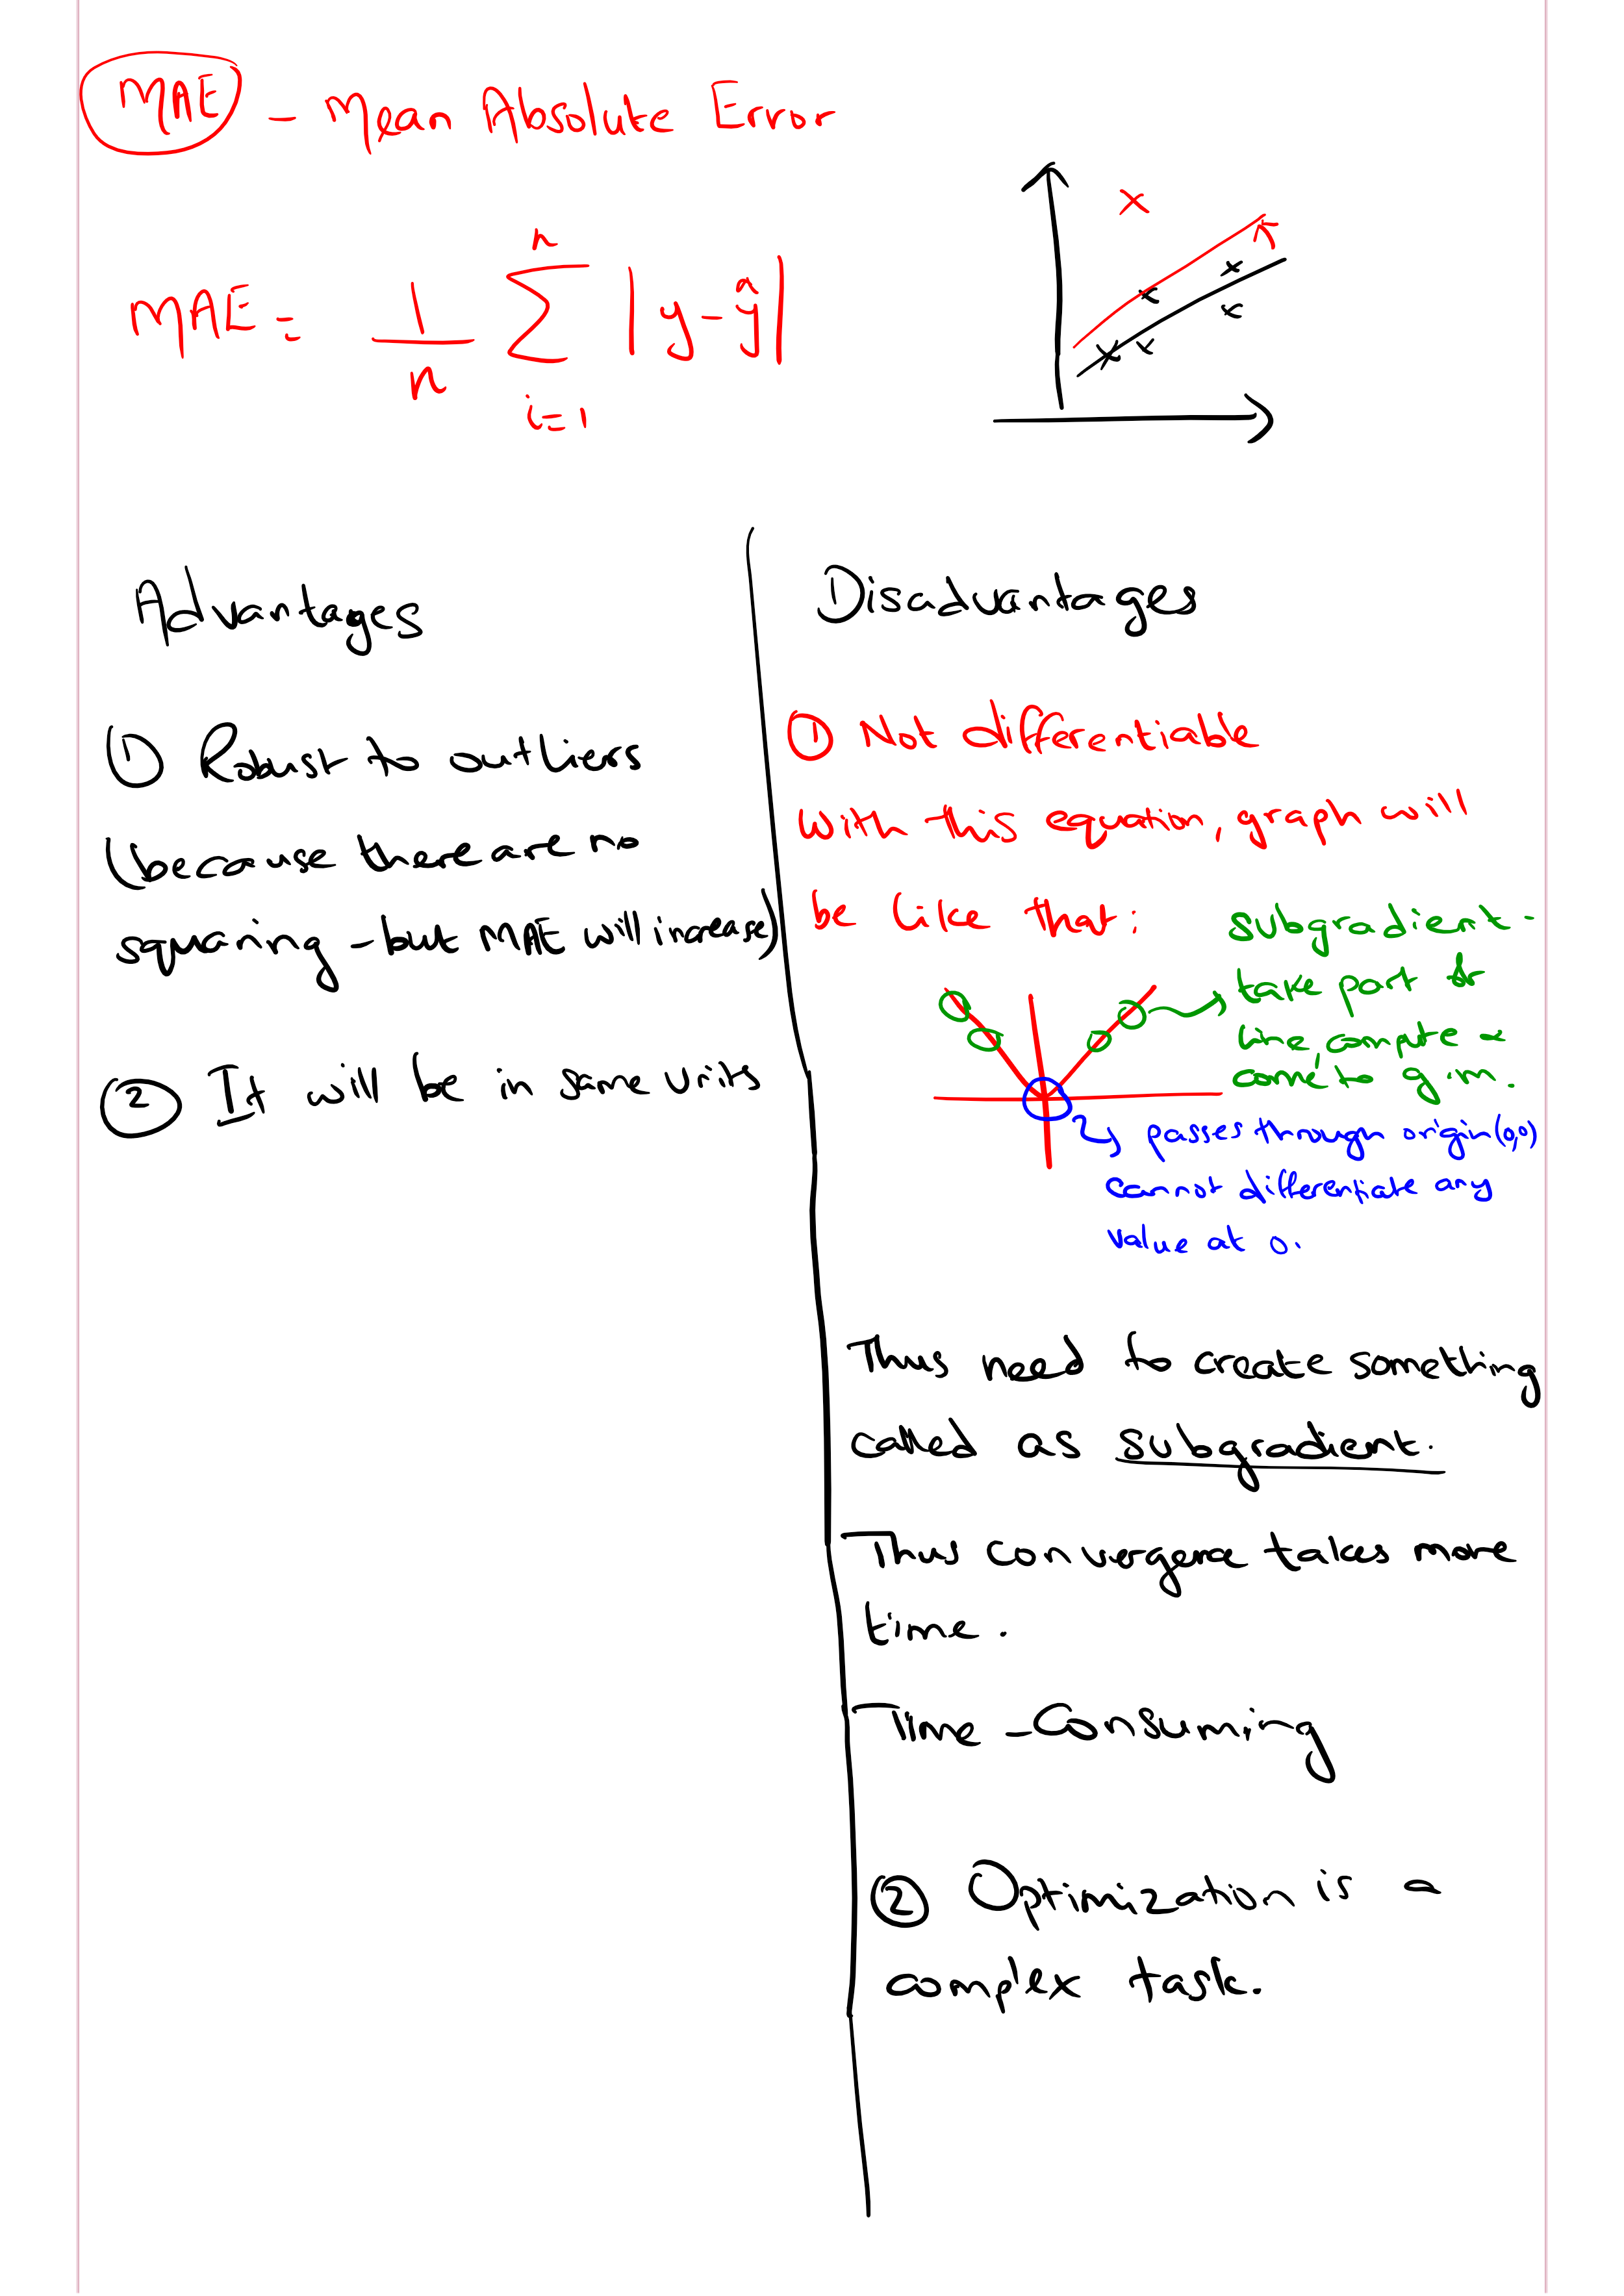 MAE - Mean Absolute Error
MAE = 1/n n Σ i=1 |y-ŷ|
Advantages
① Robust to outliers
(because there are no
squaring - but MAE will increase)
② It will be in same units
Disadvantages
① Not differentiable
with this equation, graph will
be like that:
subgradient -
take part of
line, compute &
come to g.m.
passes through origin (0,0)
cannot differentiate any
value at 0.
Thus need to create something
called as subgradient.
Thus convergence takes more
time.
Time-Consuming
② Optimization is a
complex task.